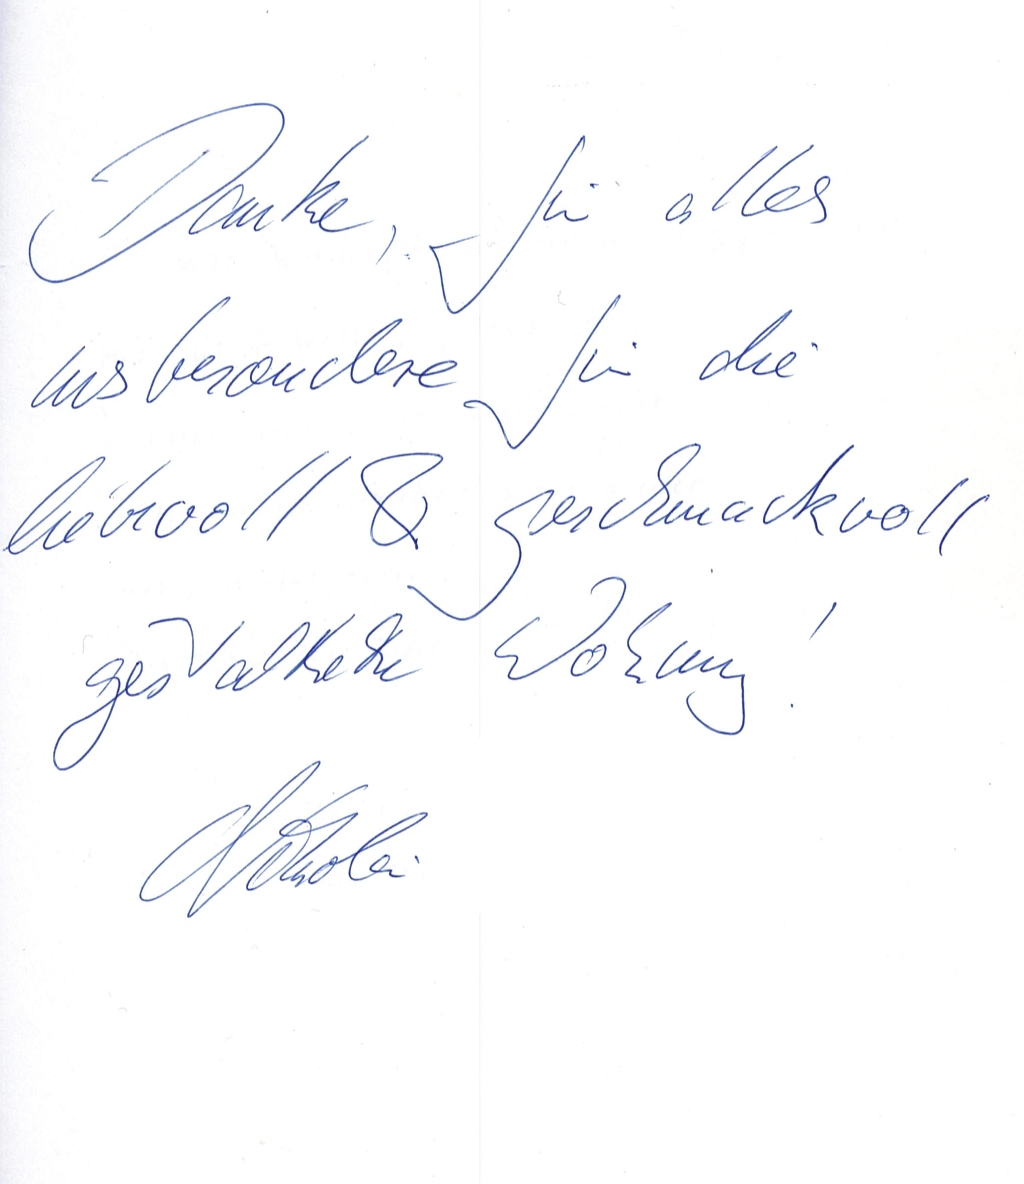 Danke, für alles
insbesondere für die
liebevoll & geschmackvoll
gestaltete Wohnung!
Nikolai